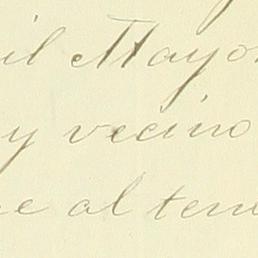 il Mayo
y vecino
e al ten